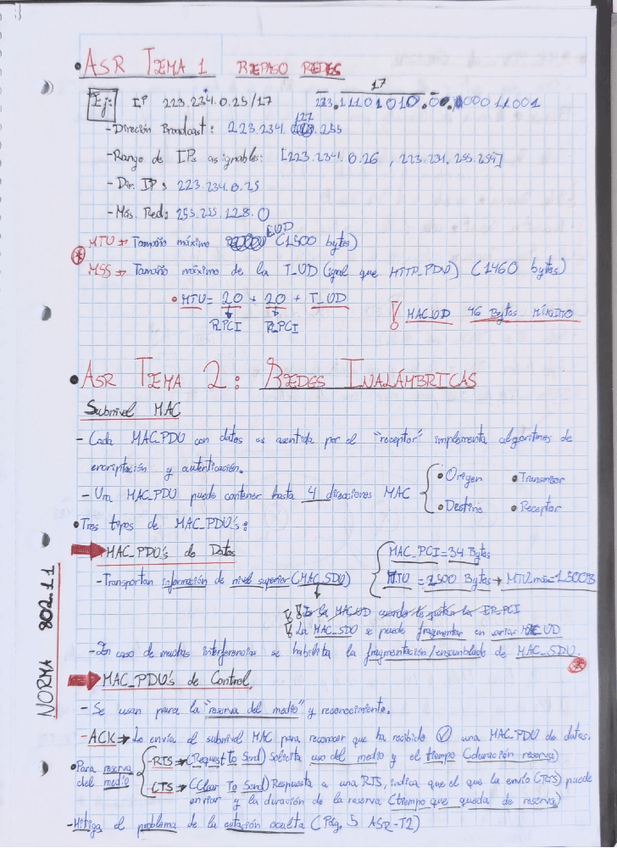 • ASR TEMA 1 REPASO REDES
Ej: IP 223.234.0.25/17
17
- Dirección Broadcast: 223.234.127.255
- Rango de IPs asignable: [223.234.0.26, 223.234.255.254]
- Dir. IP: 223.234.0.25
- Más. Red: 255.255.128.0
MTU → Tamaño máximo (1500 bytes)
MSS → Tamaño máximo de la T_UD (igual que HTTP_PDU) (1460 bytes)
• MTU = 20 + 20 + T_UD
MAC_UD 46 Bytes MÍNIMO
• ASR TEMA 2: REDES INALÁMBRICAS
Subnivel MAC
- Cada MAC_PDU con datos es asentida por el "receptor" implementa algoritmos de
encriptación y autenticación.
- Un MAC_PDU puede contener hasta 4 direcciones MAC
• Origen • Transmisor
• Destino • Receptor
• Tres tipos de MAC_PDU's:
MAC_PDU's de Datos
- Transportan información de nivel superior (MAC_SDU)
MAC_PCI = 34 Bytes
MTU = 2300 Bytes → MTU máx = 1500B
La MAC_SDU se puede fragmentar en varias UD
- En caso de muchas interferencias se habilita la fragmentación/ensamblado de MAC_SDU.
NORMA 802.11
MAC_PDU's de Control
- Se usan para la "reserva del medio" y reconocimiento.
- ACK → Lo envía el subnivel MAC para reconocer que ha recibido una MAC_PDU de datos.
• Para reserva del medio
- RTS → (Request To Send) Solicita uso del medio y el tiempo (duración reserva)
- CTS → (Clear To Send) Respuesta a una RTS, indica que el que la envío (RTS) puede
enviar y la duración de la reserva (tiempo que queda de reserva)
- Mitiga el problema de la estación oculta (Pág. 5 ASR-T2)